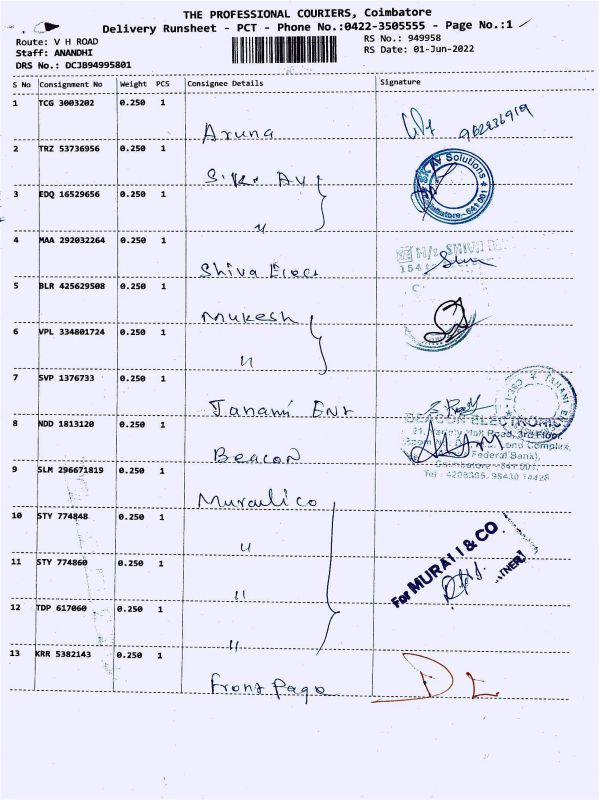 THE PROFESSIONAL COURIERS, Coimbatore
Delivery Runsheet - PCT - Phone No.:0422-3505555 - Page No.:1
Route: V H ROAD
RS No.: 949958
Staff: ANANDHI
RS Date: 01-Jun-2022
DRS No.: DCJB94995801
S No Consignment No Weight PCS Consignee Details Signature
1 TCG 3003202 0.250 1
Aruna
2 TRZ 53736956 0.250 1
S.K. AV
AV Solutions
Coimbatore - 641 001
3 EDQ 16529656 0.250 1
"
4 MAA 292032264 0.250 1
M/s. SHIVA
Shiva Elect
154
5 BLR 425629508 0.250 1
Mukesh
6 VPL 334801724 0.250 1
"
7 SVP 1376733 0.250 1
Janami Ent
8 NDD 1813120 0.250 1
BEACON ELECTRONIC
Road, 3rd Floor,
Complex,
Federal Bank),
Coimbatore - 641 001.
Beacon
9 SLM 296671819 0.250 1
Murali co
10 STY 774848 0.250 1
"
For MURALI & CO
11 STY 774860 0.250 1
"
12 TDP 617060 0.250 1
"
13 KRR 5382143 0.250 1
Front Page